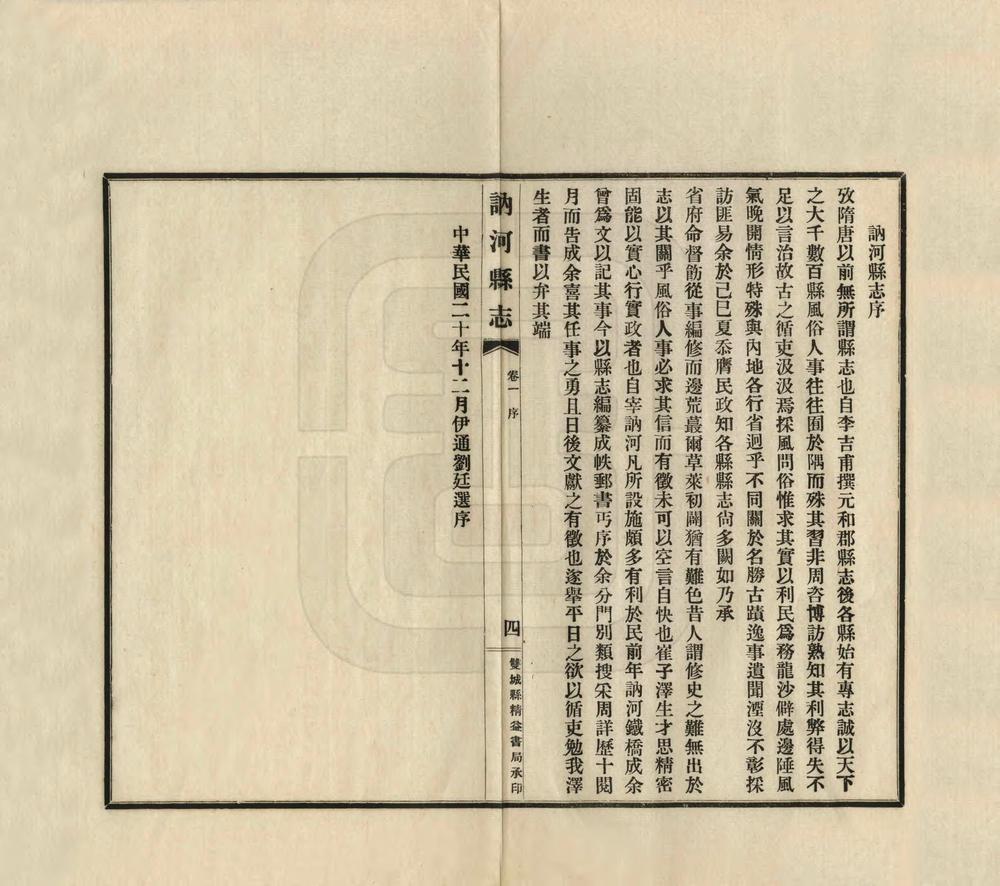 訥河縣志序
攷隋唐以前無所謂縣志也自李吉甫撰元和郡縣志後各縣始有專志誠以天下
之大千數百縣風俗人事往往囿於隅而殊其習非周咨博訪熟知其利弊得失不
足以言治故古之循吏汲汲焉採風問俗惟求其實以利民爲務龍沙僻處邊陲風
氣晚開情形特殊與內地各行省迥乎不同關於名勝古蹟逸事遺聞湮沒不彰採
訪匪易余於己巳夏忝膺民政知各縣縣志尙多闕如乃承
省府命督飭從事編修而邊荒蕞爾草萊初闢猶有難色昔人謂修史之難無出於
志以其關乎風俗人事必求其信而有徵未可以空言自快也崔子澤生才思精密
固能以實心行實政者也自宰訥河凡所設施頗多有利於民前年訥河鐵橋成余
曾爲文以記其事今以縣志編纂成帙郵書丐序於余分門別類搜采周詳歷十閱
月而告成余喜其任事之勇且日後文獻之有徵也遂舉平日之欲以循吏勉我澤
生者而書以弁其端
訥河縣志
卷一 序
四
雙城縣精益書局承印
中華民國二十年十二月伊通劉廷選序